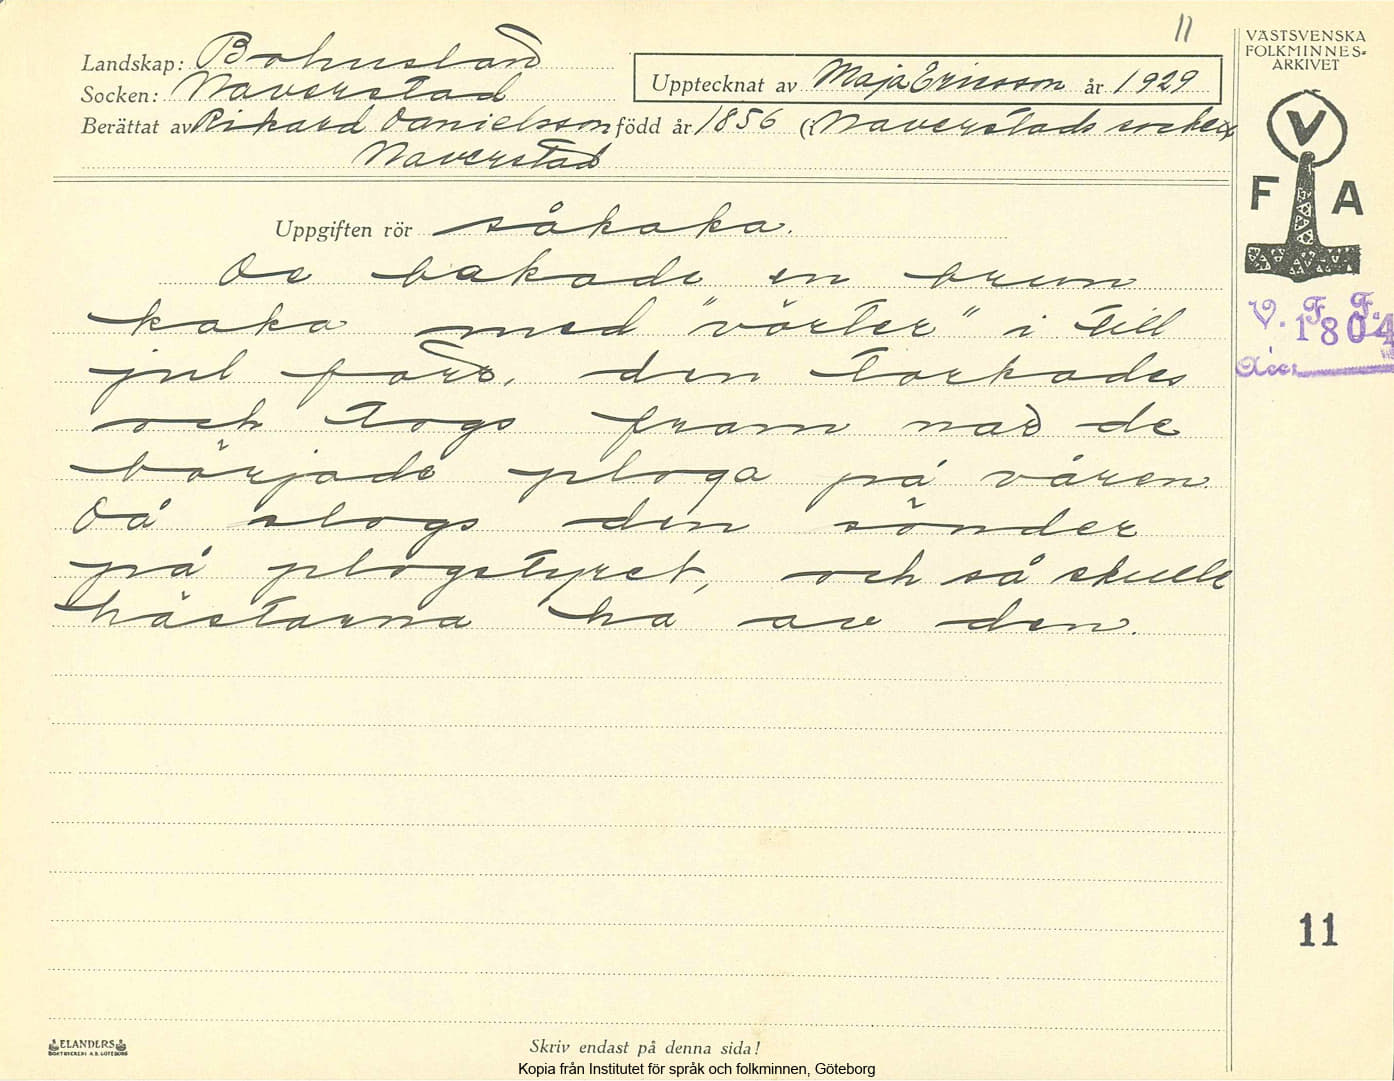 11
VÄSTSVENSKA
FOLKMINNES-
ARKIVET
Landskap: Bohuslän
Socken: Naverstad
Upptecknat av Maja Ericsson år 1929
Berättat av Rikard Danielsson född år 1856 (i Naverstads socken
Naverstad
V
F A
Uppgiften rör såkaka.
De bakade en brun
kaka med "vörter" i till
jul förr, den torkades
och togs fram när de
började ploga på våren.
Då slogs den sönder
på plogstyret, och så skulle
hästarna ha av den.
V. F. F.
1804
Acc.
11
ELANDERS
BOKTRYCKERI A.B. GÖTEBORG
Skriv endast på denna sida!
Kopia från Institutet för språk och folkminnen, Göteborg